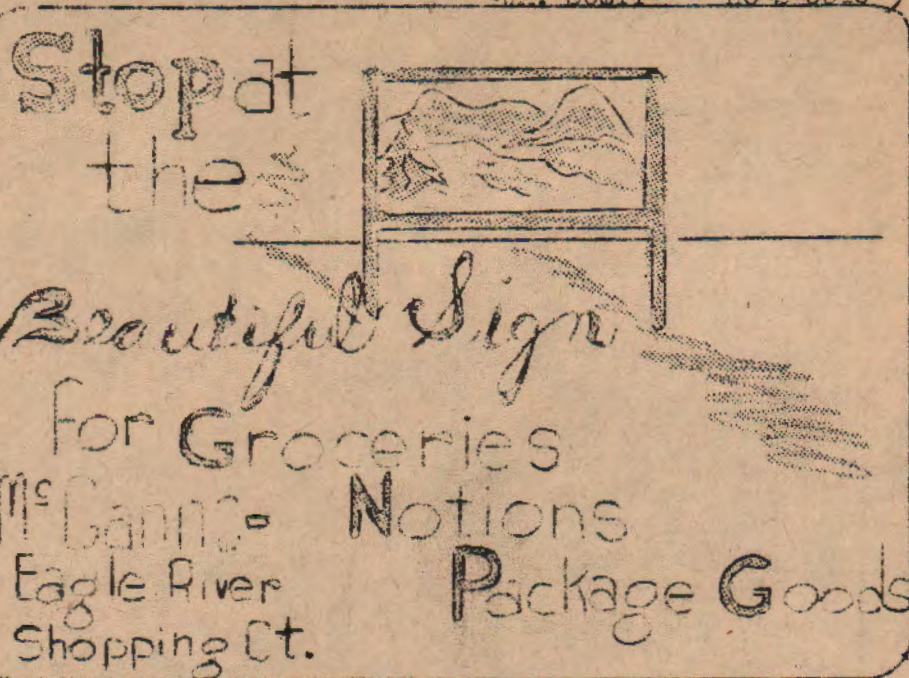 Stop at
the
Beautiful Sign
for Groceries
Notions
Package Goods
Eagle River
Shopping Ct.